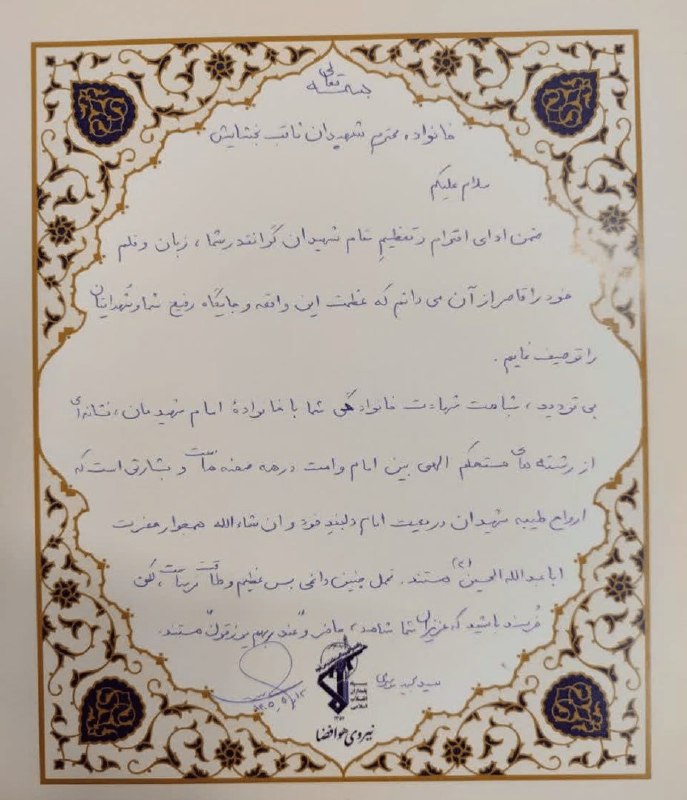 بسمه تعالی
خانواده محترم شهیدان نائب بخشایش
سلام علیکم
ضمن ادای احترام و تعظیم مقام شهیدان گرانقدر شما، زبان و قلم
خود را قاصر از آن می دانم که عظمت این واقعه و جایگاه رفیع شما و شهدایتان
را توصیف نمایم.
بی تردید، شباهت شهادت خانوادگی شما با خانوادهٔ امام شهیدمان، نشانه‌ای
از رشته های مستحکم الهی بین امام و امت در همه صحنه هاست و بشارتی است که
ارواح طیبه شهیدان در معیت امام دلبند خود و ان شاءالله همجوار حضرت
اباعبدالله الحسین (ع) هستند. تحمل چنین داغی بس عظیم و طاقت فرساست، لکن
خرسند باشید که عزیزان شما شاهد، حاضر و "عند ربهم یرزقون" هستند.
سید مجید موسوی
سپاه
پاسداران
انقلاب
اسلامی
۱۳۵۷
نیروی هوافضا